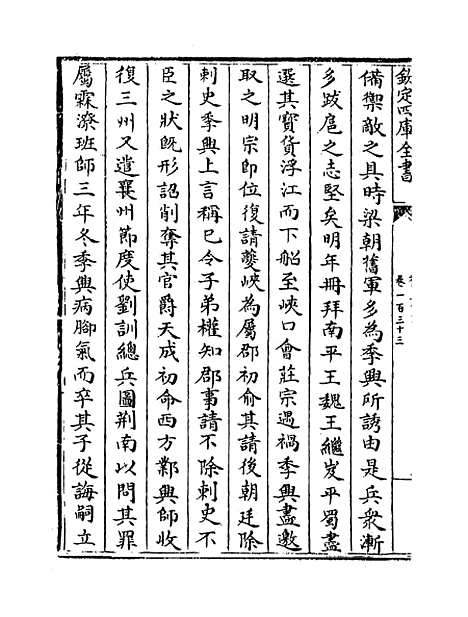 欽定四庫全書
卷一百三十三
備禦敵之具時梁朝舊軍多為季興所誘由是兵衆漸
多跋扈之志堅矣明年冊拜南平王魏王繼岌平蜀盡
選其寳貨浮江而下船至峽口會莊宗遇禍季興盡邀
取之明宗即位復請夔峽為屬郡初俞其請後朝廷除
刺史季興上言稱已令子弟權知郡事請不除刺史不
臣之狀既形詔削奪其官爵天成初命西方鄴興師收
復三州又遣襄州節度使劉訓總兵圍荆南以問其罪
屬霖潦班師三年冬季興病腳氣而卒其子從誨嗣立